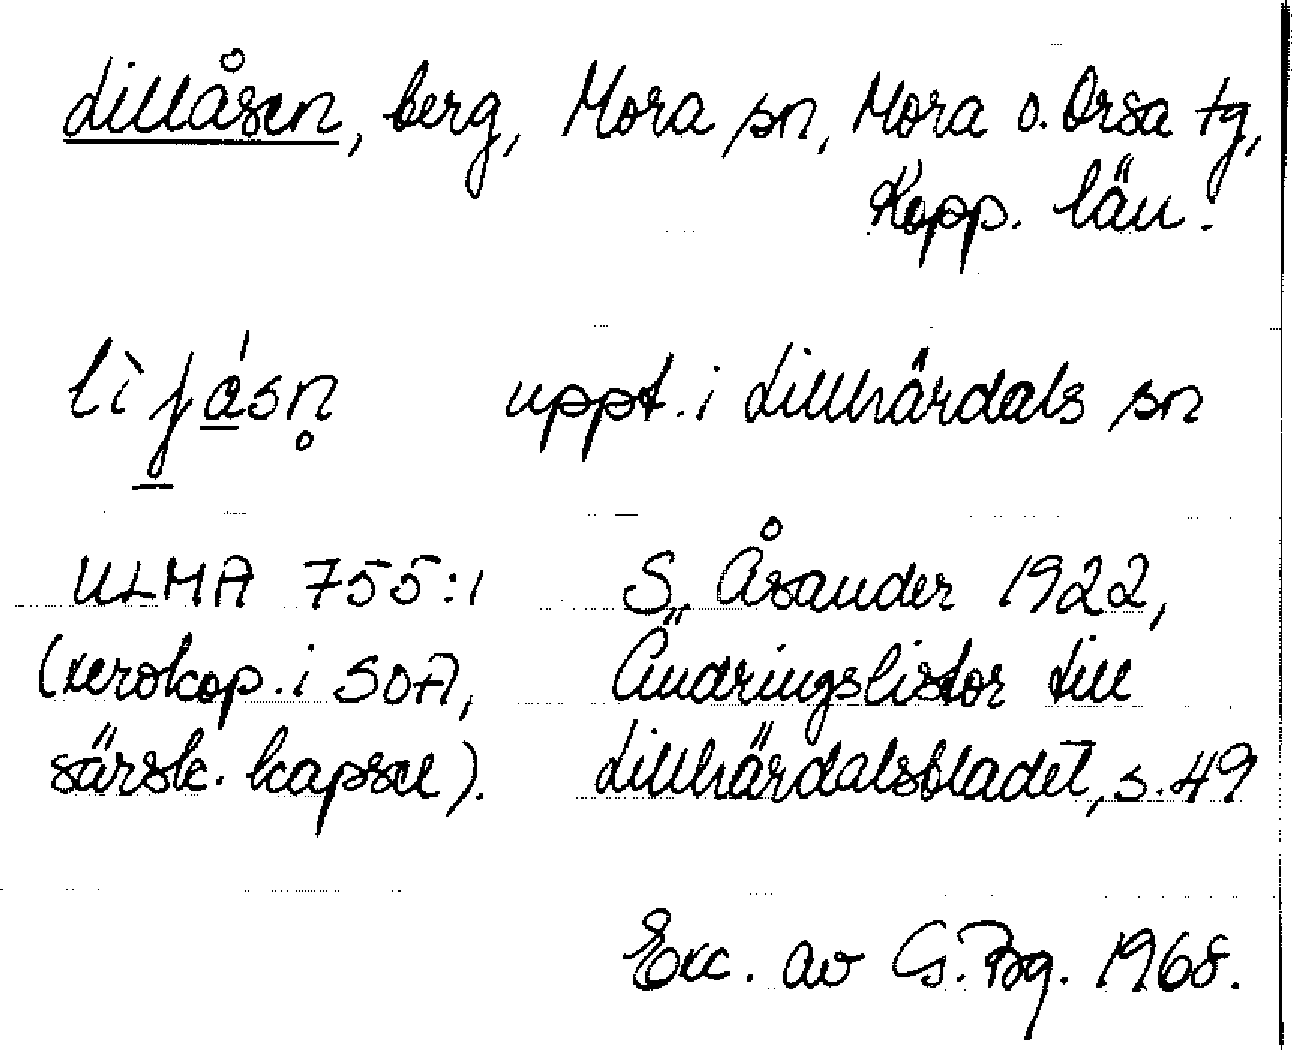 Lillåsen, berg, Mora sn, Mora o. Orsa tg,
Kopp. län.
lìʃásn̥ uppt. i Lillhärdals sn
ULMA 755:1 S. Åsander 1922,
(xerokop. i SOA, Ändringslistor till
särsk. kapsel). Lillhärdalsbladet, s. 49
Exc. av G. Bg. 1968.